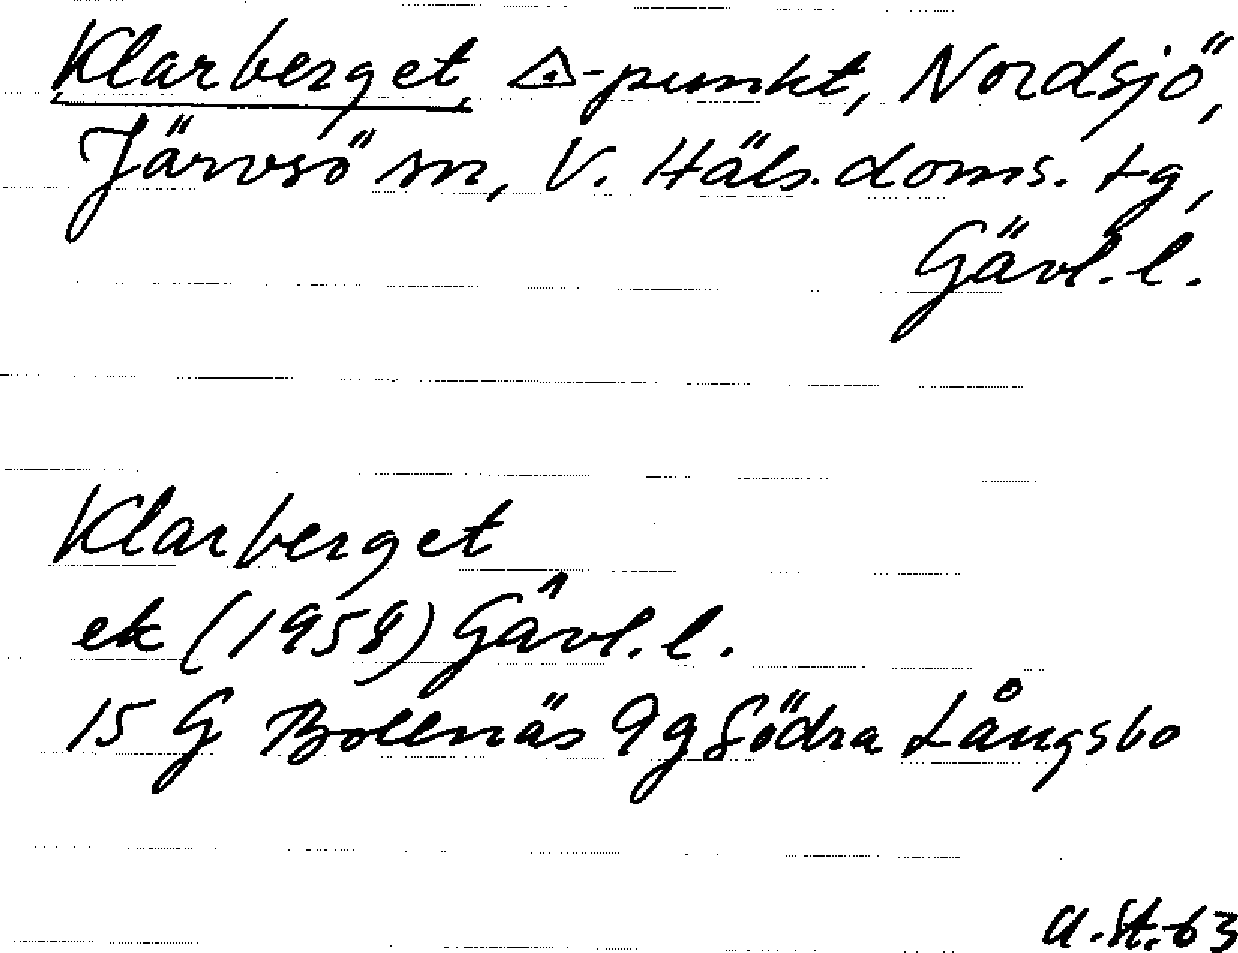 Klarberget, △-punkt, Nordsjö,
Järvsö sn, V. Häls. doms. tg,
Gävl. l.
Klarberget
ek (1958) Gävl. l.
15 G Bollnäs 9g Södra Långsbo
U.St.-63